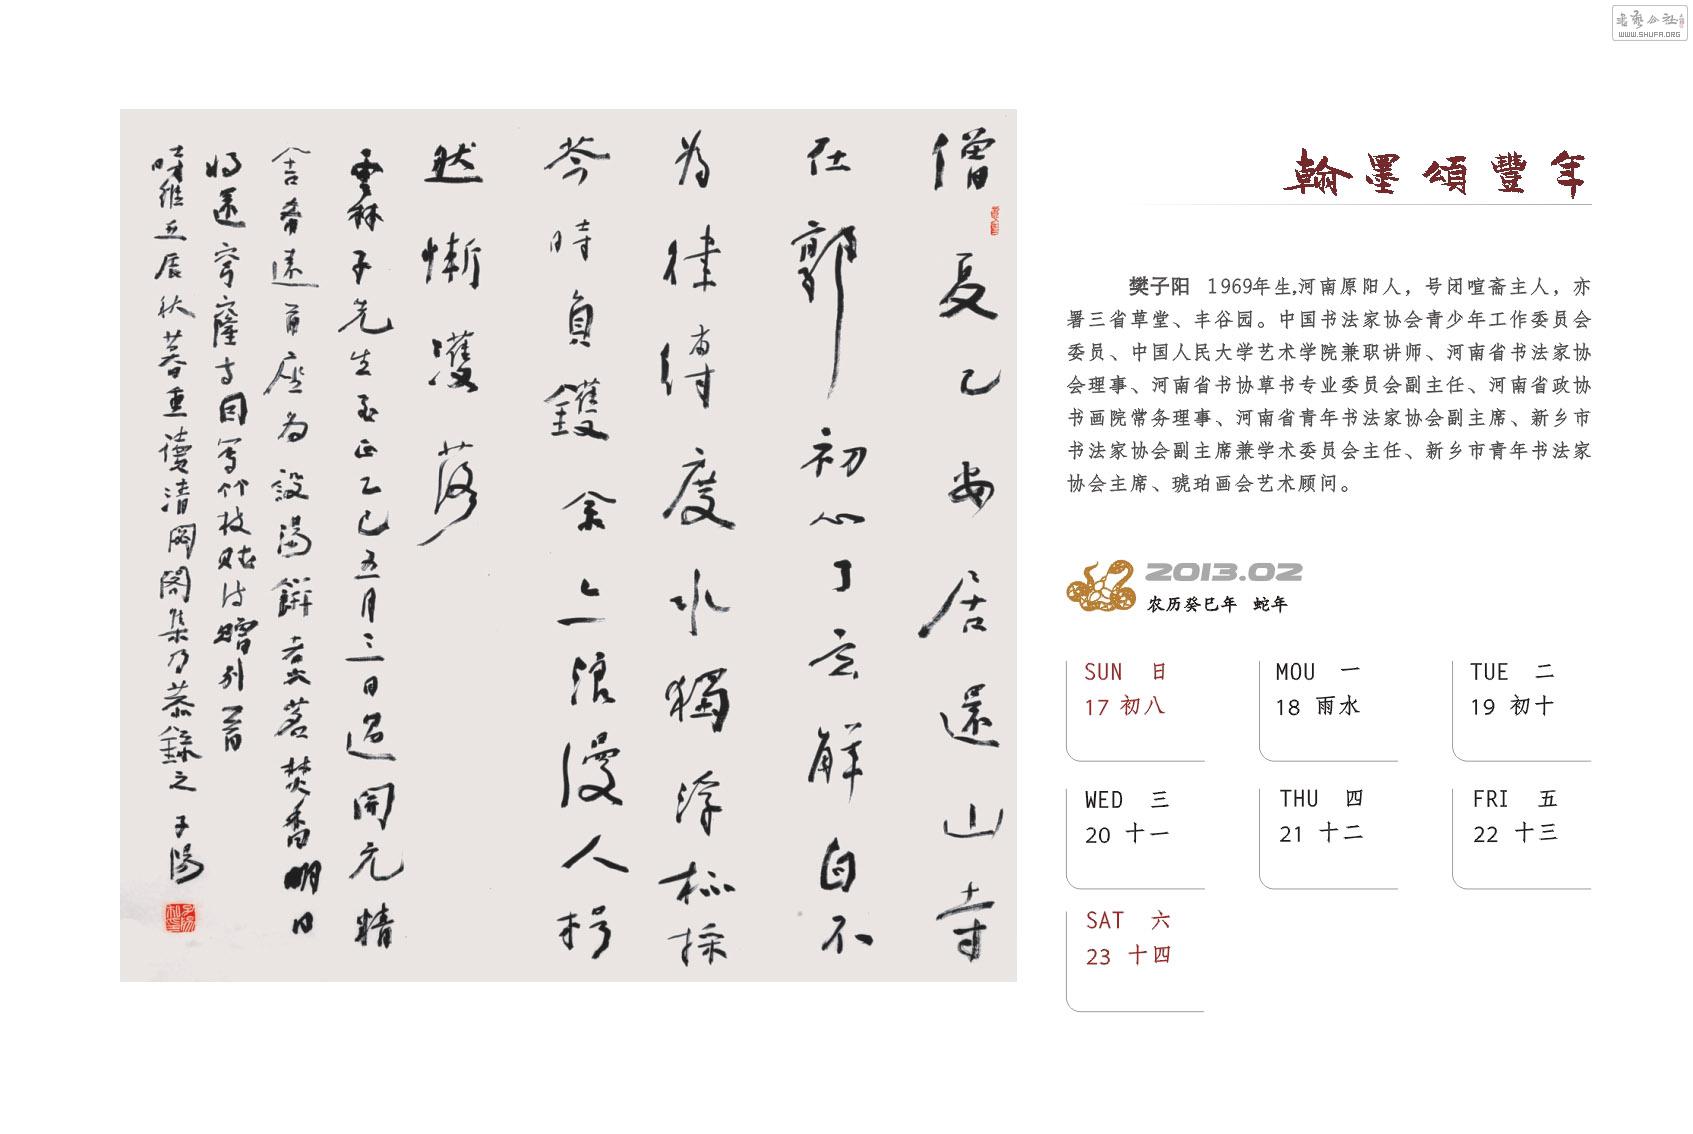 書藝公社
WWW.SHUFA.ORG
翰墨頌豐年
僧夏已安居還山寺
在郭初心了玄解自不
為律縛度水獨浮杯採
芩時負钁余亦浪漫人栩
然慚濩落
雲林子先生至正乙巳五月三日過開元精
舍希遠首座為設湯餅煮茗焚香明日
將還穹窿寺因寫竹枝賦詩贈別一首
時維壬辰秋暮重讀清閟閣集乃恭錄之 子陽
樊子阳 1969年生,河南原阳人，号闭喧斋主人，亦
署三省草堂、丰谷园。中国书法家协会青少年工作委员会
委员、中国人民大学艺术学院兼职讲师、河南省书法家协
会理事、河南省书协草书专业委员会副主任、河南省政协
书画院常务理事、河南省青年书法家协会副主席、新乡市
书法家协会副主席兼学术委员会主任、新乡市青年书法家
协会主席、琥珀画会艺术顾问。
2013.02
农历癸巳年 蛇年
SUN 日
17 初八
MOU 一
18 雨水
TUE 二
19 初十
WED 三
20 十一
THU 四
21 十二
FRI 五
22 十三
SAT 六
23 十四